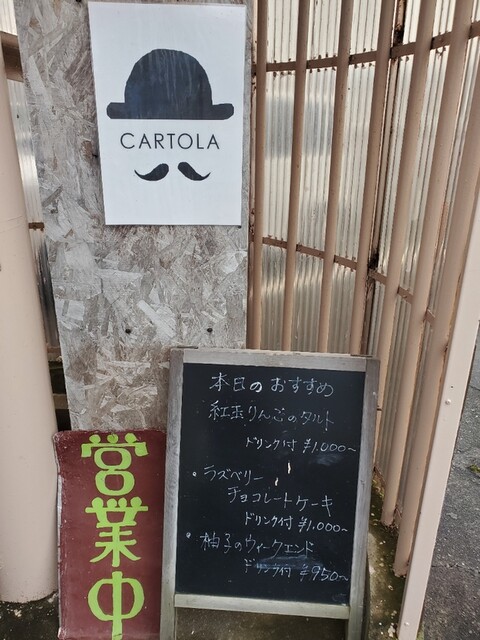 CARTOLA
本日のおすすめ
紅玉りんごのタルト
ドリンク付 ¥1,000~
・ラズベリー
チョコレートケーキ
ドリンク付 ¥1,000~
・柚子のウィークエンド
ドリンク付 ¥950~
営業中